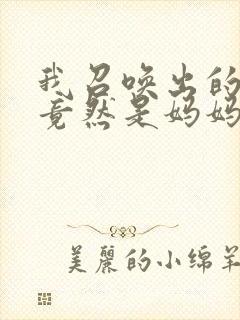 我召唤出的
竟然是妈妈
美丽的小绵羊